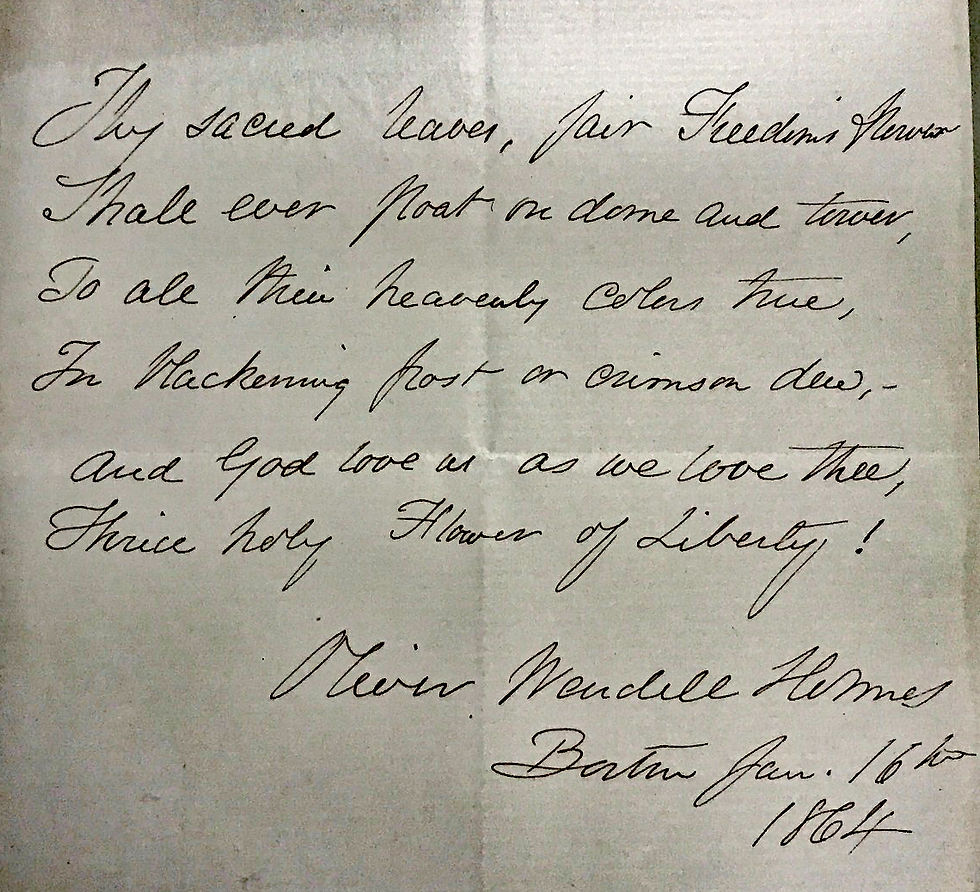 Thy sacred leaves, fair Freedom's flower
Shall ever float on dome and tower,
To all their heavenly colors true,
In blackening frost or crimson dew,-
And God love us as we love thee,
Thrice holy Flower of Liberty!
Oliver Wendell Holmes
Boston Jan. 16th
1864